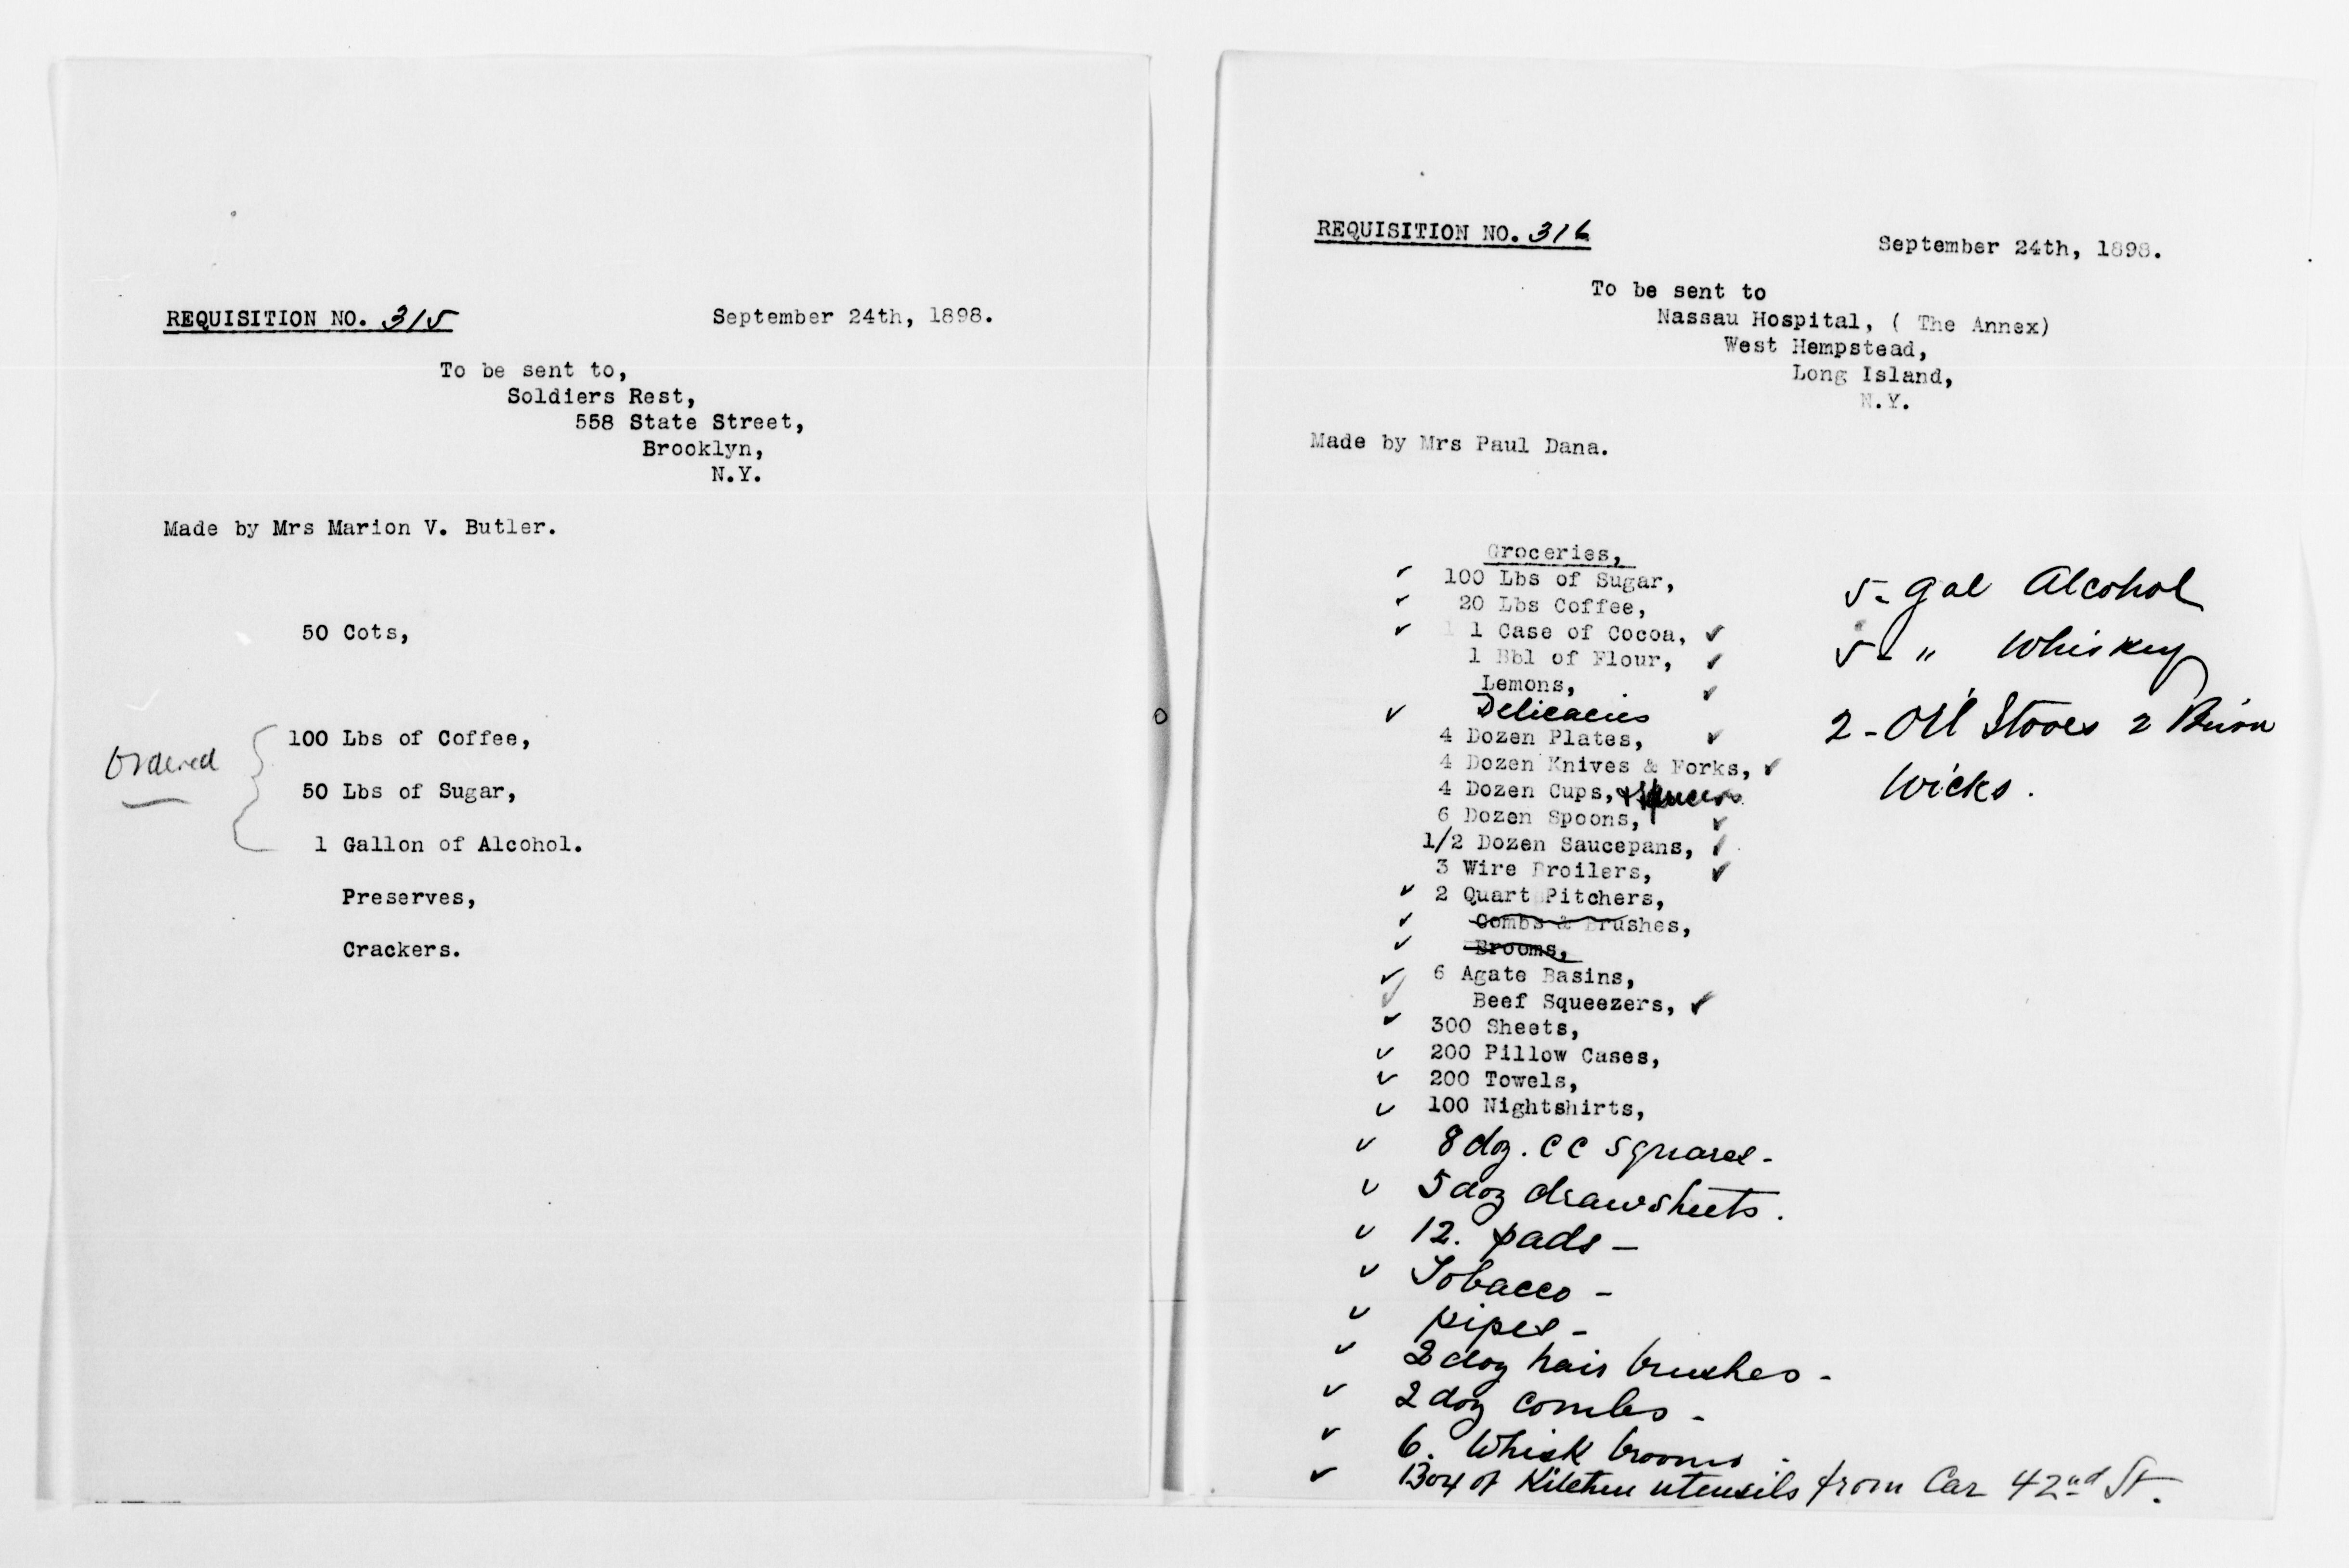 REQUISITION NO. 315
September 24th, 1898.
To be sent to,
Soldiers Rest,
558 State Street,
Brooklyn,
N.Y.
Made by Mrs Marion V. Butler.
50 Cots,
Ordered
100 Lbs of Coffee,
50 Lbs of Sugar,
1 Gallon of Alcohol.
Preserves,
Crackers.
REQUISITION NO. 316
September 24th, 1898.
To be sent to
Nassau Hospital, ( The Annex)
West Hempstead,
Long Island,
N.Y.
Made by Mrs Paul Dana.
Groceries,
✓ 100 Lbs of Sugar,
✓ 20 Lbs Coffee,
✓ 1 Case of Cocoa, ✓
1 Bbl of Flour, ✓
Lemons, ✓
✓ Delicacies
4 Dozen Plates, ✓
4 Dozen Knives & Forks, ✓
4 Dozen Cups, & Saucers
6 Dozen Spoons, ✓
1/2 Dozen Saucepans, ✓
3 Wire Broilers, ✓
✓ 2 Quart Pitchers,
✓ Combs & Brushes,
✓ Brooms,
✓ 6 Agate Basins,
✓ Beef Squeezers, ✓
✓ 300 Sheets,
✓ 200 Pillow Cases,
✓ 200 Towels,
✓ 100 Nightshirts,
✓ 8 doz. CC squares -
✓ 5 doz drawsheets.
✓ 12. pads -
✓ Tobacco -
✓ pipes -
✓ 2 doz hair brushes -
✓ 2 doz combs -
✓ 6. Whisk brooms -
✓ Box of Kitchen utensils from Car 42nd St.
5 - gal Alcohol
5 - " Whiskey
2 - Oil Stoves 2
Wicks.